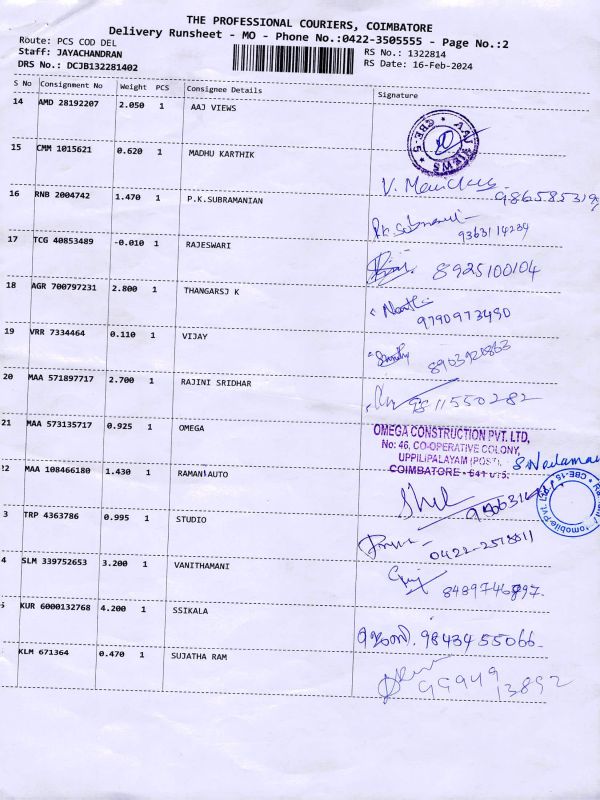 THE PROFESSIONAL COURIERS, COIMBATORE
Delivery Runsheet - MO - Phone No.:0422-3505555 - Page No.:2
Route: PCS COD DEL
Staff: JAYACHANDRAN
DRS No.: DCJB132281402
RS No.: 1322814
RS Date: 16-Feb-2024
S No Consignment No Weight PCS Consignee Details Signature
14 AMD 28192207 2.050 1 AAJ VIEWS
AAJ VIEWS * CBE-5 *
15 CMM 1015621 0.620 1 MADHU KARTHIK
986585319
16 RNB 2004742 1.470 1 P.K.SUBRAMANIAN
9363114234
17 TCG 40853489 -0.010 1 RAJESWARI
8925100104
18 AGR 700797231 2.800 1 THANGARSJ K
9790973490
19 VRR 7334464 0.110 1 VIJAY
8903920863
20 MAA 571897717 2.700 1 RAJINI SRIDHAR
11550282
21 MAA 573135717 0.925 1 OMEGA
OMEGA CONSTRUCTION PVT. LTD,
No: 46, CO-OPERATIVE COLONY,
UPPILIPALAYAM (POST),
COIMBATORE - 641 015.
22 MAA 108466180 1.430 1 RAMANI AUTO
CBE-15
3 TRP 4363786 0.995 1 STUDIO
0422-2578811
4 SLM 339752653 3.200 1 VANITHAMANI
8489746897.
5 KUR 6000132768 4.200 1 SSIKALA
9843455066.
KLM 671364 0.470 1 SUJATHA RAM
99949
13892